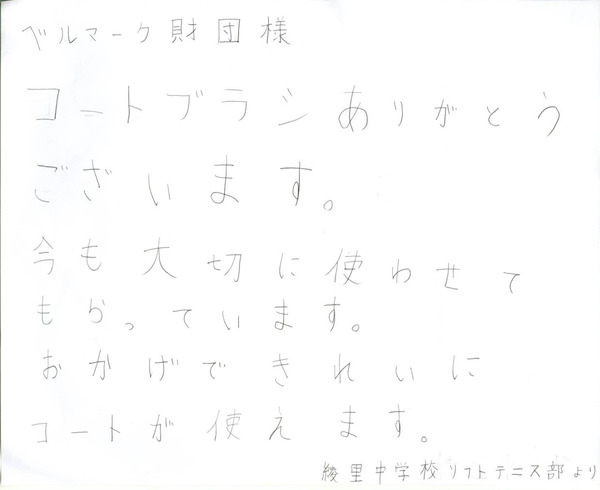 ベルマーク財団様
コートブラシありがとう
ございます。
今も大切に使わせて
もらっています。
おかげできれいに
コートが使えます。
綾里中学校ソフトテニス部より